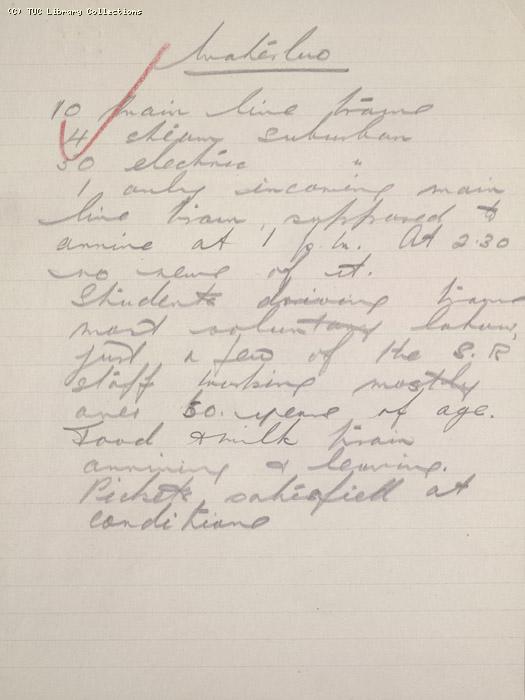 (C) TUC Library Collections
Waterloo
10 main line trains
4 steam suburban
30 electric "
1 only incoming main
line train, supposed to
arrive at 1 p.m. At 2.30
no news of it.
Students driving trains
most voluntary labour,
just a few of the S.R
staff working mostly
over 50. years of age.
Food & milk train
arriving & leaving.
Pickets satisfied at
conditions